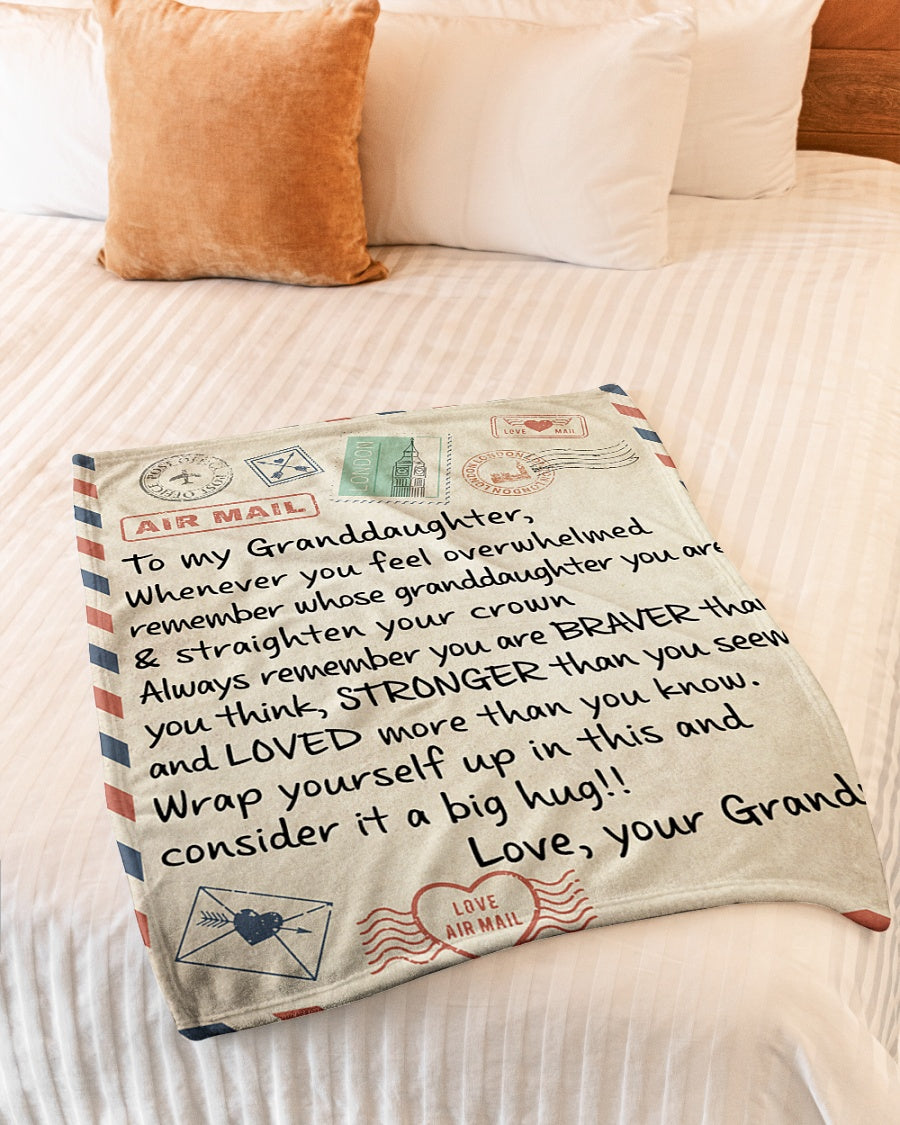 LOVE MAIL
POST OFFICE POST OFFICE
LONDON
LONDON LONDON LONDON
AIR MAIL
To my Granddaughter,
Whenever you feel overwhelmed
remember whose granddaughter you are
& straighten your crown
Always remember you are BRAVER than
you think, STRONGER than you seem
and LOVED more than you know.
Wrap yourself up in this and
consider it a big hug!!
Love, your Grand
LOVE
AIR MAIL